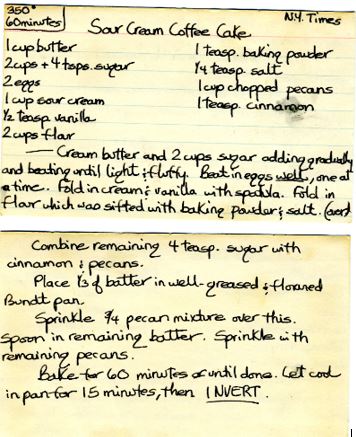 350°
60 minutes
N.Y. Times
Sour Cream Coffee Cake
1 cup butter
2 cups + 4 tsps. sugar
2 eggs
1 cup sour cream
1/2 teasp. vanilla
2 cups flour
1 teasp. baking powder
1/4 teasp. salt
1 cup chopped pecans
1 teasp. cinnamon
Cream butter and 2 cups sugar adding gradually
and beating until light & fluffy. Beat in eggs well, one at
a time. Fold in cream & vanilla with spatula. Fold in
flour which was sifted with baking powder & salt. (over)
Combine remaining 4 teasp. sugar with
cinnamon & pecans.
Place 1/3 of batter in well-greased & floured
Bundt pan.
Sprinkle 3/4 pecan mixture over this.
Spoon in remaining batter. Sprinkle with
remaining pecans.
Bake for 60 minutes or until done. Let cool
in pan for 15 minutes, then INVERT.